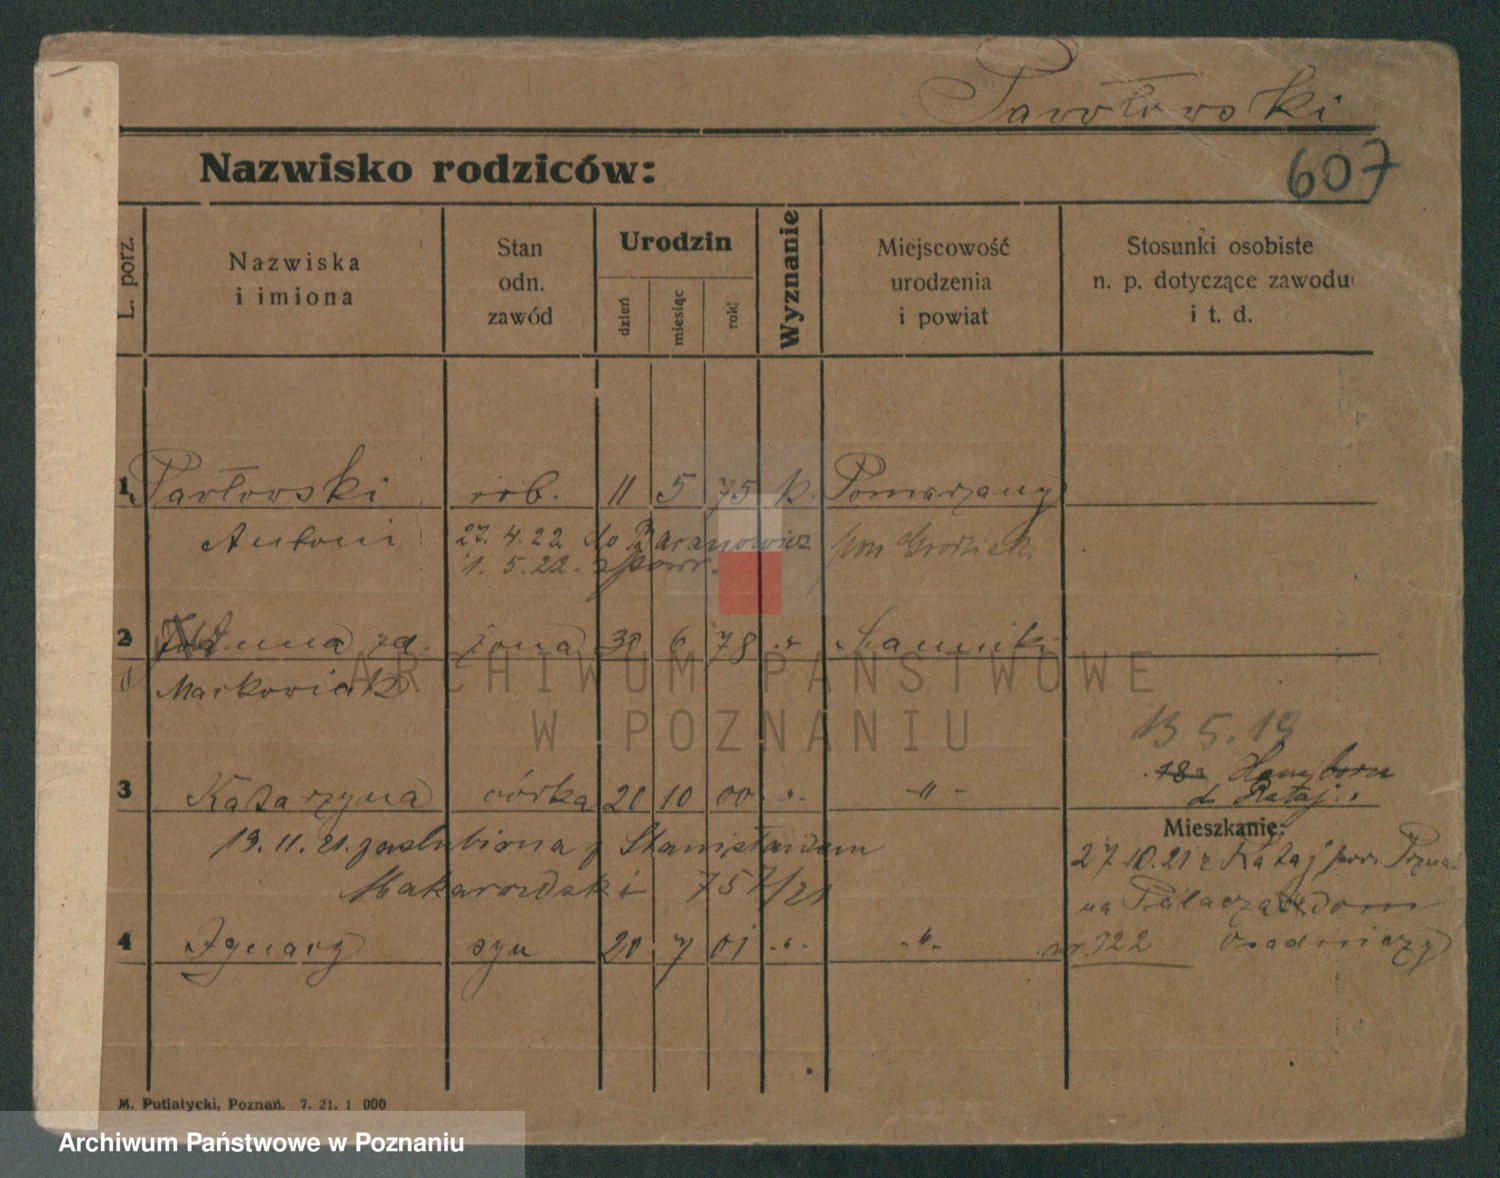 Pawłowski
Nazwisko rodziców:
607
L. porz.
Nazwiska i imiona
Stan odn. zawód
Urodzin
dzień
miesiąc
rok
Wyznanie
Miejscowość urodzenia i powiat
Stosunki osobiste n. p. dotyczące zawodu i t. d.
1 Pawłowski rob. 11 5 75 k. Pomarzany
Antoni 27. 4. 22 do Baranowicz pow Grodzisk.
1. 5. 22. z powr.
2 Anna zd. żona 30 6 78
Markowiak
13 5. 19
3 Katarzyna córka 20 10 00 " - " -
d Rataj.
19. 11. 21. zaślubiona z Stanisławem
Mieszkanie:
27 10. 21 z Rataj pow. Pozna
Makarowski 757/21
na
4 Ignacy syn 20 7 01 " - " -
nr. 122
M. Putiatycki, Poznań. 7. 21. 1 000
ARCHIWUM PAŃSTWOWE
W POZNANIU
Archiwum Państwowe w Poznaniu